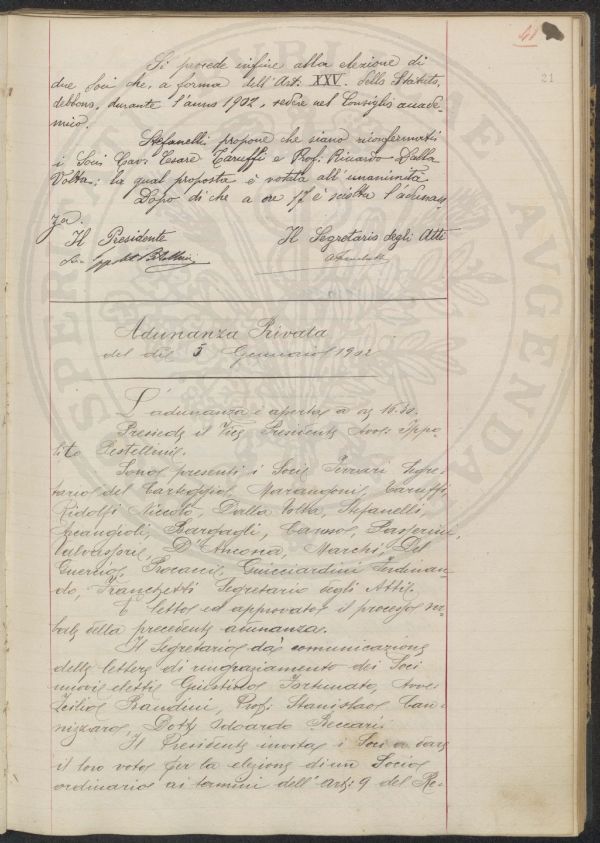 41
21
Si procede infine alla elezione di
due Soci che, a forma dell'Art. XXV. dello Statuto,
debbono, durante l'anno 1902, sedere nel Consiglio accade-
mico.
Stefanelli propone che siano riconfermati
i Soci Cav. Cesare Taruffi e Prof. Riccardo Dalla
Volta; la qual proposta è votata all'unanimità.
Dopo di che a ore 17 è sciolta l'adunan-
za.
Il Presidente
Il Segretario degli Atti
Adunanza Privata
del dì 5 Gennaio 1902
L'adunanza è aperta a ore 16.30.
Presiede il Vice Presidente Avv. Ippo-
lito Pestellini.
Sono presenti i Soci Ferrari Segre-
tario del Carteggio, Marangoni, Taruffi,
Ridolfi Niccolò, Dalla Volta, Stefanelli,
Arcangioli, Bargagli, Passerini,
Valvassori, D'Ancona, Marchi, Del
Guercio, Procacci, Guicciardini Ferdinan-
do, Franchetti Segretario degli Atti.
È letto ed approvato il processo ver-
bale della precedente adunanza.
Il Segretario dà comunicazione
delle lettere di ringraziamento dei Soci
nuovi eletti Giustino Fortunato, Avv.
Icilio Bandini, Prof. Stanislao Can-
nizzaro, Dott. Odoardo Beccari.
Il Presidente invita i Soci a dare
il loro voto per la elezione di un Socio
ordinario ai termini dell'art. 9 del Re-